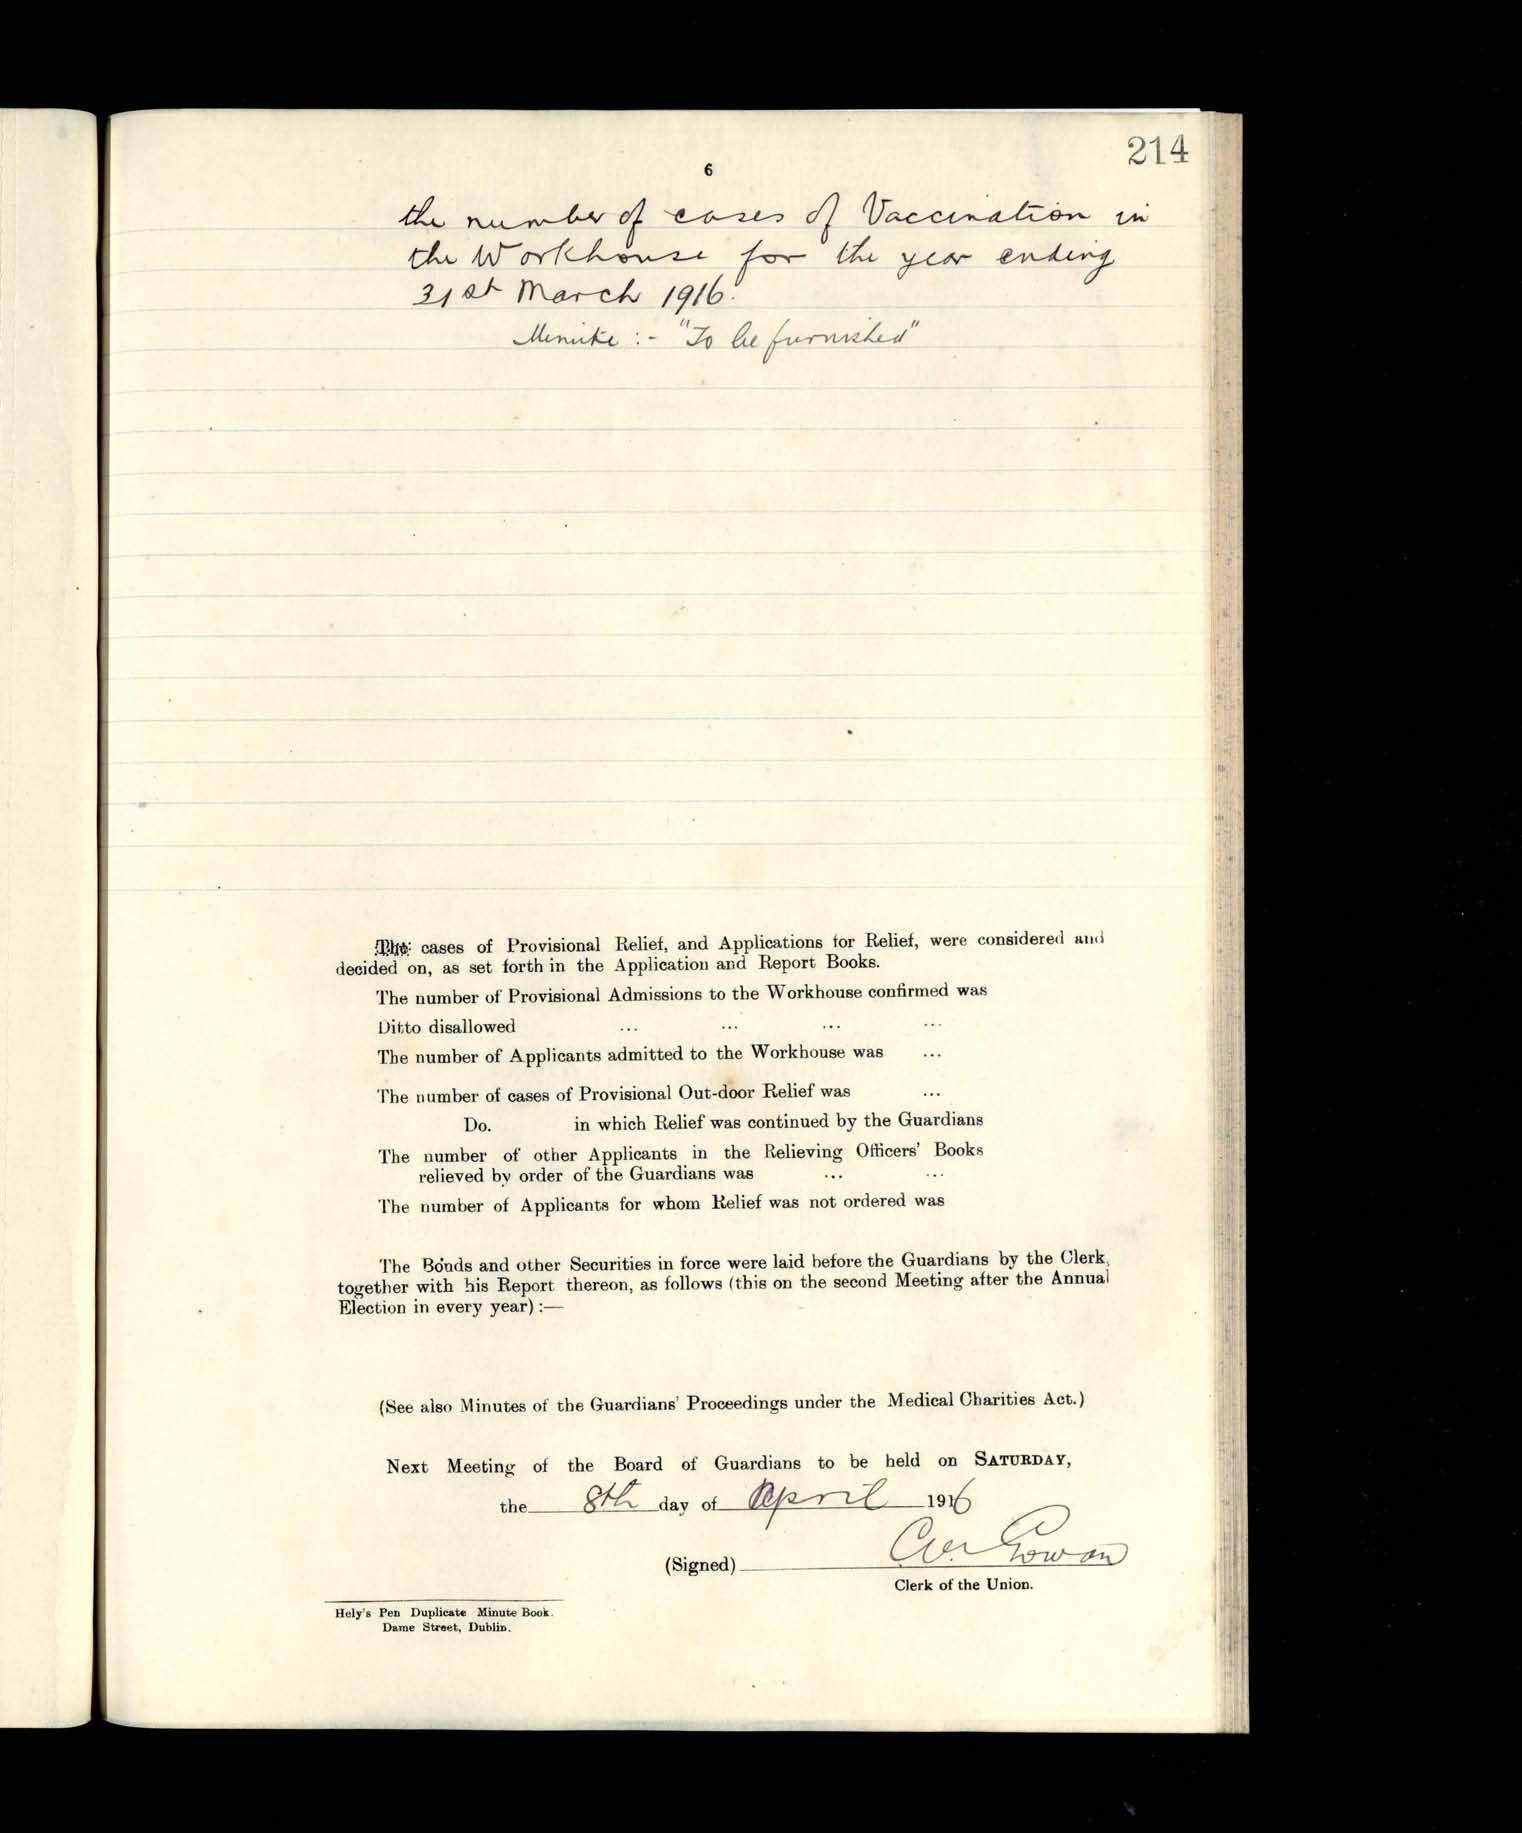 214
6
the number of cases of Vaccination in
the Workhouse for the year ending
31st March 1916.
Minute :- "To be furnished"
The cases of Provisional Relief, and Applications for Relief, were considered and
decided on, as set forth in the Application and Report Books.
The number of Provisional Admissions to the Workhouse confirmed was
Ditto disallowed ... ... ... ...
The number of Applicants admitted to the Workhouse was ...
The number of cases of Provisional Out-door Relief was ...
Do. in which Relief was continued by the Guardians
The number of other Applicants in the Relieving Officers' Books
relieved by order of the Guardians was ... ...
The number of Applicants for whom Relief was not ordered was
The Bonds and other Securities in force were laid before the Guardians by the Clerk,
together with his Report thereon, as follows (this on the second Meeting after the Annual
Election in every year) :—
(See also Minutes of the Guardians' Proceedings under the Medical Charities Act.)
Next Meeting of the Board of Guardians to be held on SATURDAY,
the 8th day of April 1916
(Signed) Gowan
Clerk of the Union.
Hely's Pen Duplicate Minute Book.
Dame Street, Dublin.